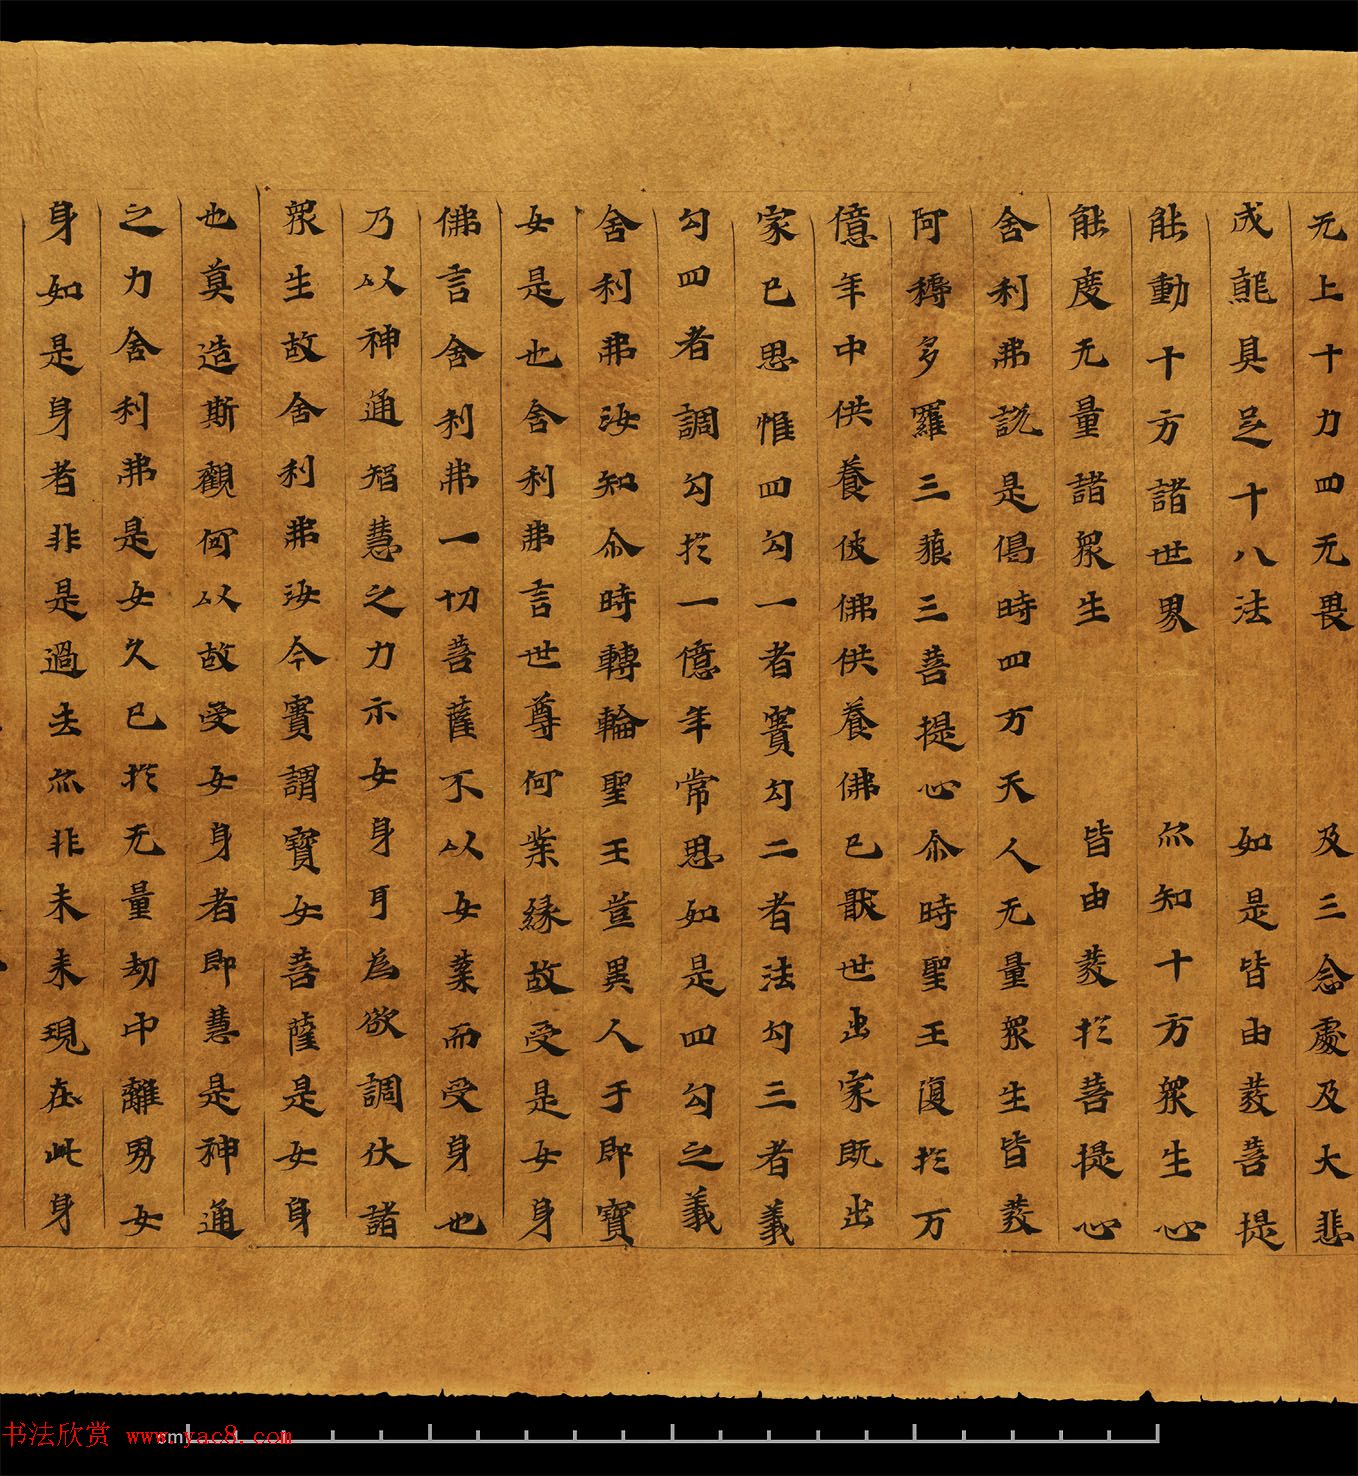 无上十力四无畏 及三念處及大悲
成就具足十八法 如是皆由發菩提
能動十方諸世界 亦知十方眾生心
能度无量諸眾生 皆由發於菩提心
舍利弗說是偈時四方天人无量眾生皆發
阿耨多羅三藐三菩提心尒時聖王復於万
億年中供養彼佛供養佛已猒世出家既出
家已思惟四句一者寶句二者法句三者義
句四者調句於一億年常思如是四句之義
舍利弗汝知尒時轉輪聖王豈異人乎即寶
女是也舍利弗言世尊何業緣故受是女身
佛言舍利弗一切菩薩不以女業而受身也
乃以神通智慧之力示女身耳為欲調伏諸
眾生故舍利弗汝今實謂寶女菩薩是女身
也莫造斯觀何以故受女身者即慧是神通
之力舍利弗是女久已於无量劫中離男女
身如是身者非是過去亦非未來現在此身
书法欣赏 www.yac8.com
cm